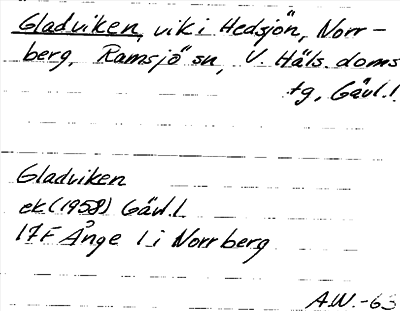 Gladviken, vik i Hedsjön, Norr-
berg, Ramsjö sn, V. Häls. doms
tg, Gävl.l.
Gladviken
ek (1958) Gävl.l
17F Ånge 1 i Norrberg
A.W.-63